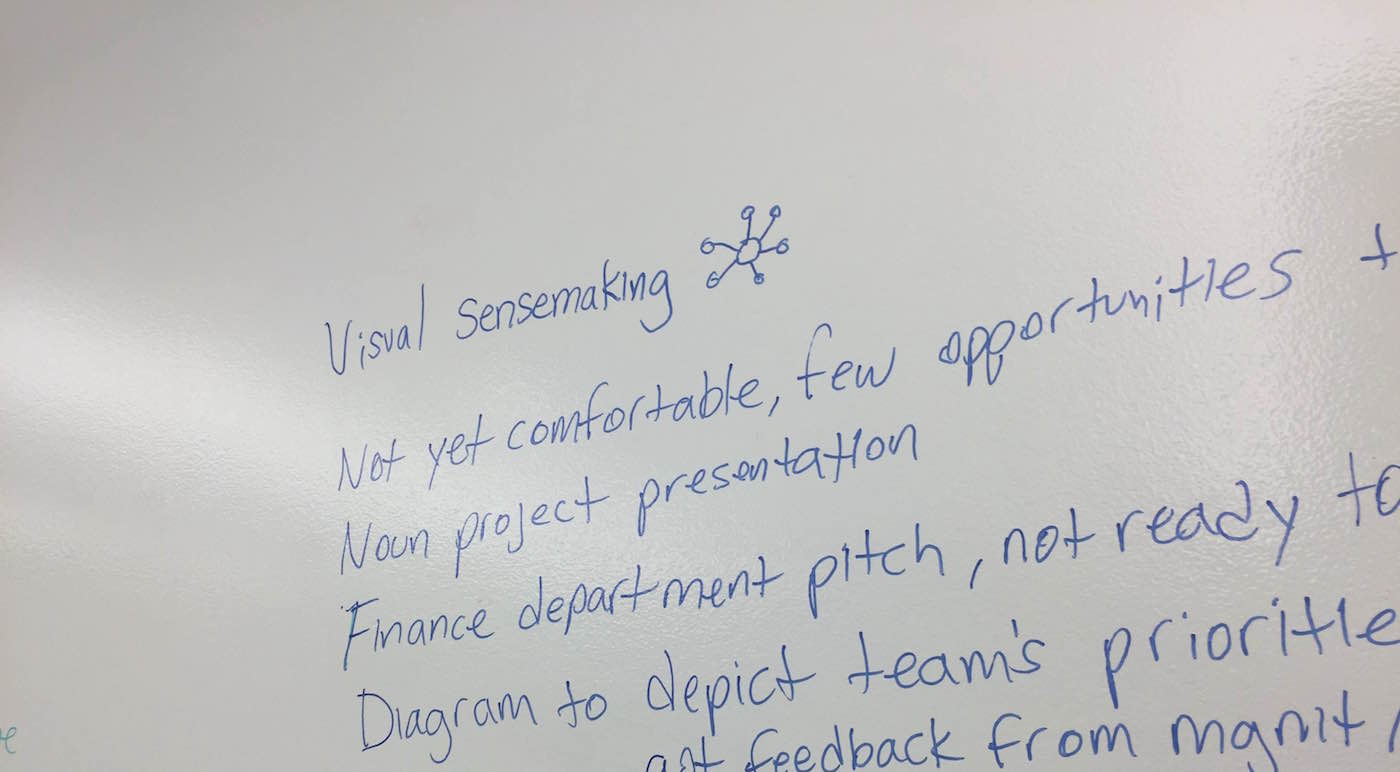 Visual Sensemaking
Not yet comfortable, few opportunities t
Noun project presentation
Finance department pitch, not ready to
Diagram to depict team's prioritie
got feedback from mgmt